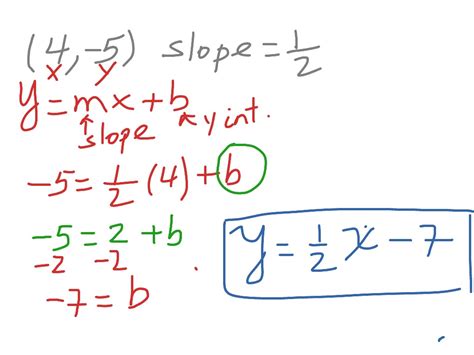 (4, -5) slope = 1/2
x y
y = mx + b
slope
y int.
-5 = 1/2 (4) + b
-5 = 2 + b
-2 -2
-7 = b
y = 1/2 x - 7